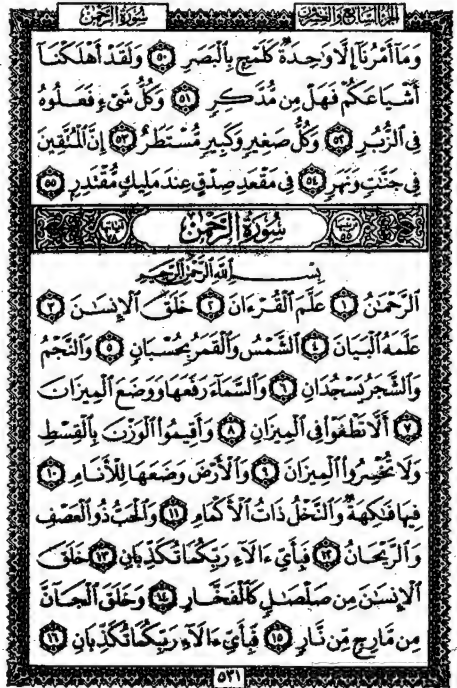 سُورَةُ الرَّحْمٰن الجزء السابع والعشرون
وَمَآ أَمْرُنَآ إِلَّا وَٰحِدَةٌ كَلَمْحٍۭ بِٱلْبَصَرِ ٥٠ وَلَقَدْ أَهْلَكْنَآ
أَشْيَاعَكُمْ فَهَلْ مِن مُّدَّكِرٍ ٥١ وَكُلُّ شَىْءٍ فَعَلُوهُ
فِى ٱلزُّبُرِ ٥٢ وَكُلُّ صَغِيرٍ وَكَبِيرٍ مُّسْتَطَرٌ ٥٣ إِنَّ ٱلْمُتَّقِينَ
فِى جَنَّٰتٍ وَنَهَرٍ ٥٤ فِى مَقْعَدِ صِدْقٍ عِندَ مَلِيكٍ مُّقْتَدِرٍۭ ٥٥
سُورَةُ الرَّحْمٰن
بِسْمِ ٱللَّهِ ٱلرَّحْمَٰنِ ٱلرَّحِيمِ
ٱلرَّحْمَٰنُ ١ عَلَّمَ ٱلْقُرْءَانَ ٢ خَلَقَ ٱلْإِنسَٰنَ ٣
عَلَّمَهُ ٱلْبَيَانَ ٤ ٱلشَّمْسُ وَٱلْقَمَرُ بِحُسْبَانٍ ٥ وَٱلنَّجْمُ
وَٱلشَّجَرُ يَسْجُدَانِ ٦ وَٱلسَّمَآءَ رَفَعَهَا وَوَضَعَ ٱلْمِيزَانَ
٧ أَلَّا تَطْغَوْا۟ فِى ٱلْمِيزَانِ ٨ وَأَقِيمُوا۟ ٱلْوَزْنَ بِٱلْقِسْطِ
وَلَا تُخْسِرُوا۟ ٱلْمِيزَانَ ٩ وَٱلْأَرْضَ وَضَعَهَا لِلْأَنَامِ ١٠
فِيهَا فَٰكِهَةٌ وَٱلنَّخْلُ ذَاتُ ٱلْأَكْمَامِ ١١ وَٱلْحَبُّ ذُو ٱلْعَصْفِ
وَٱلرَّيْحَانُ ١٢ فَبِأَىِّ ءَالَآءِ رَبِّكُمَا تُكَذِّبَانِ ١٣ خَلَقَ
ٱلْإِنسَٰنَ مِن صَلْصَٰلٍ كَٱلْفَخَّارِ ١٤ وَخَلَقَ ٱلْجَآنَّ
مِن مَّارِجٍ مِّن نَّارٍ ١٥ فَبِأَىِّ ءَالَآءِ رَبِّكُمَا تُكَذِّبَانِ ١٦
٥٣١